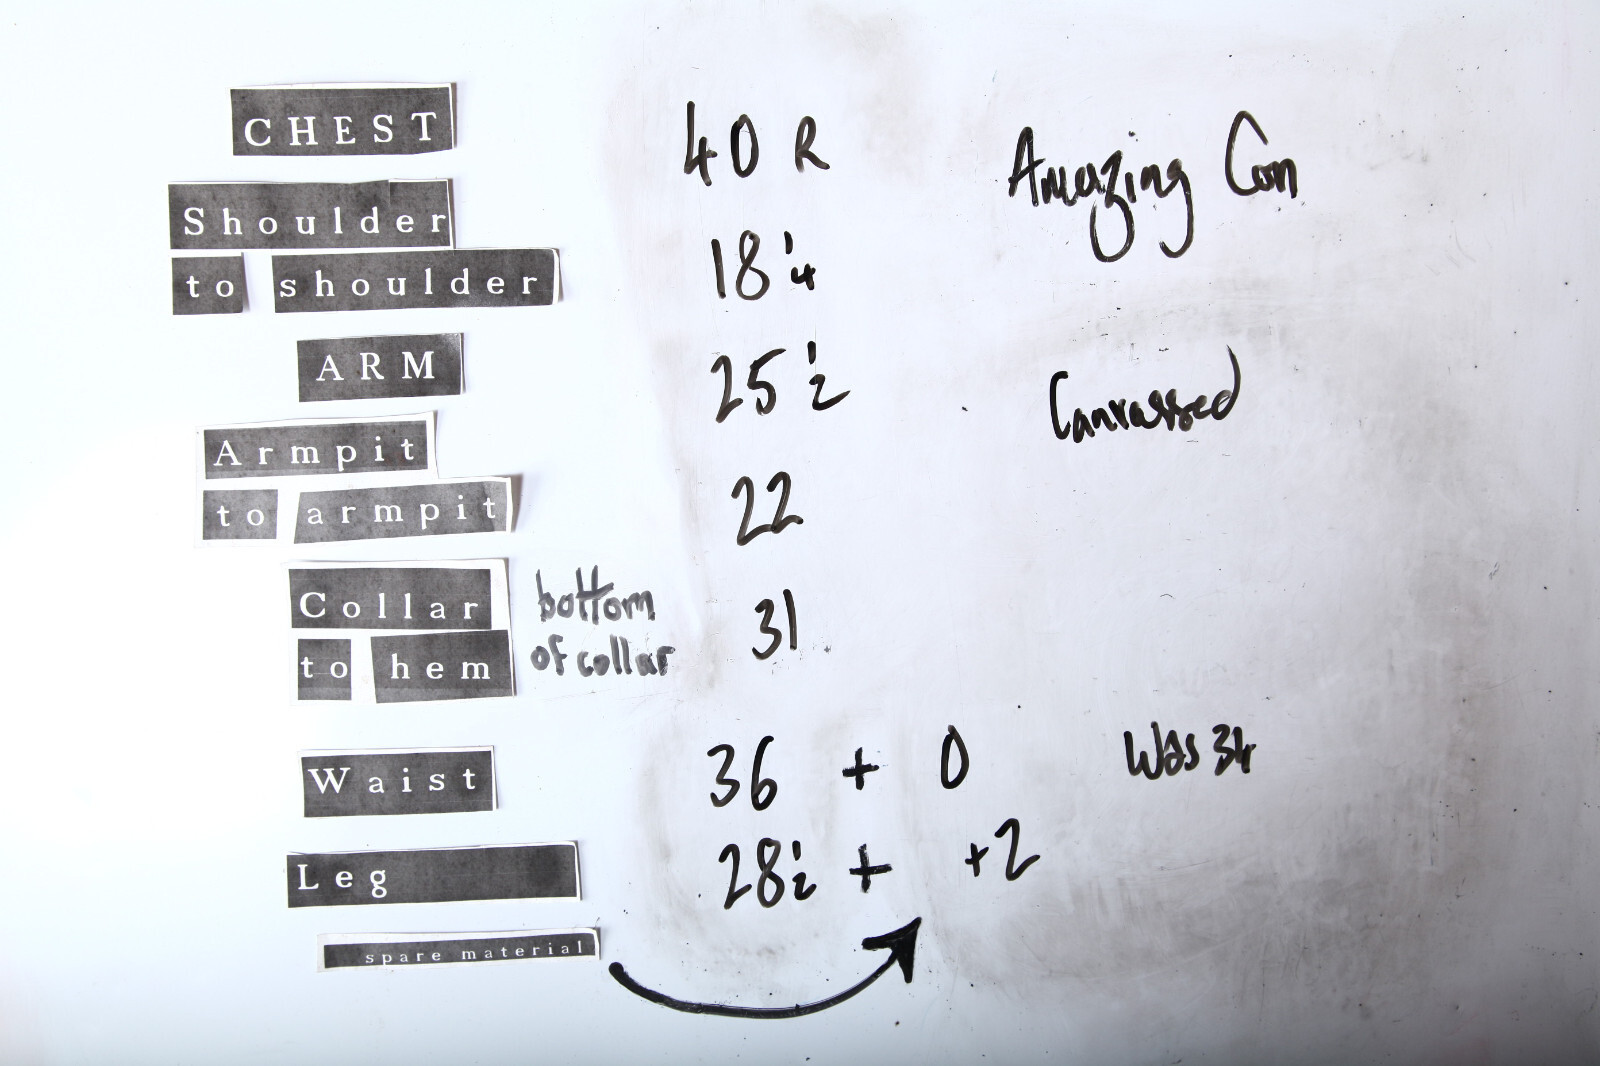 CHEST 40 R Amazing Con
Shoulder
to shoulder 18 1/4
ARM 25 1/2 Canvassed
Armpit
to armpit 22
Collar bottom
to hem of collar 31
Waist 36 + 0 Was 34
Leg 28 1/2 + +2
spare material